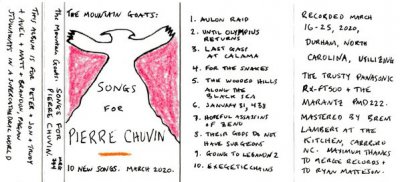 THIS ALBUM IS FOR PETER + JON + TRUDY
+ AXEL + MATT + BRANDON, PAGAN
STOWAWAYS IN A WORLD
THE MOUNTAIN GOATS: SONGS FOR
PIERRE CHUVIN
THE MOUNTAIN GOATS:
SONGS
FOR
PIERRE CHUVIN
10 NEW SONGS. MARCH 2020.
1. AULON RAID
2. UNTIL OLYMPIUS
RETURNS
3. LAST GASP
AT CALAMA
4. FOR THE SNAKES
5. THE WOODED HILLS
ALONG THE
BLACK SEA
6. JANUARY 31, 438
7. HOPEFUL ASSASSINS
OF ZENO
8. THEIR GODS DO NOT
HAVE SURGEONS
9. GOING TO LEBANON 2
10. EXEGETIC CHAINS
RECORDED MARCH
16-25, 2020,
DURHAM, NORTH
CAROLINA, UTILIZING
THE TRUSTY PANASONIC
RX-FT500 + THE
MARANTZ PMD222.
MASTERED BY BRENT
LAMBERT AT THE
KITCHEN, CARRBORO
NC. MAXIMUM THANKS
TO MERGE RECORDS +
TO RYAN MATTESON.